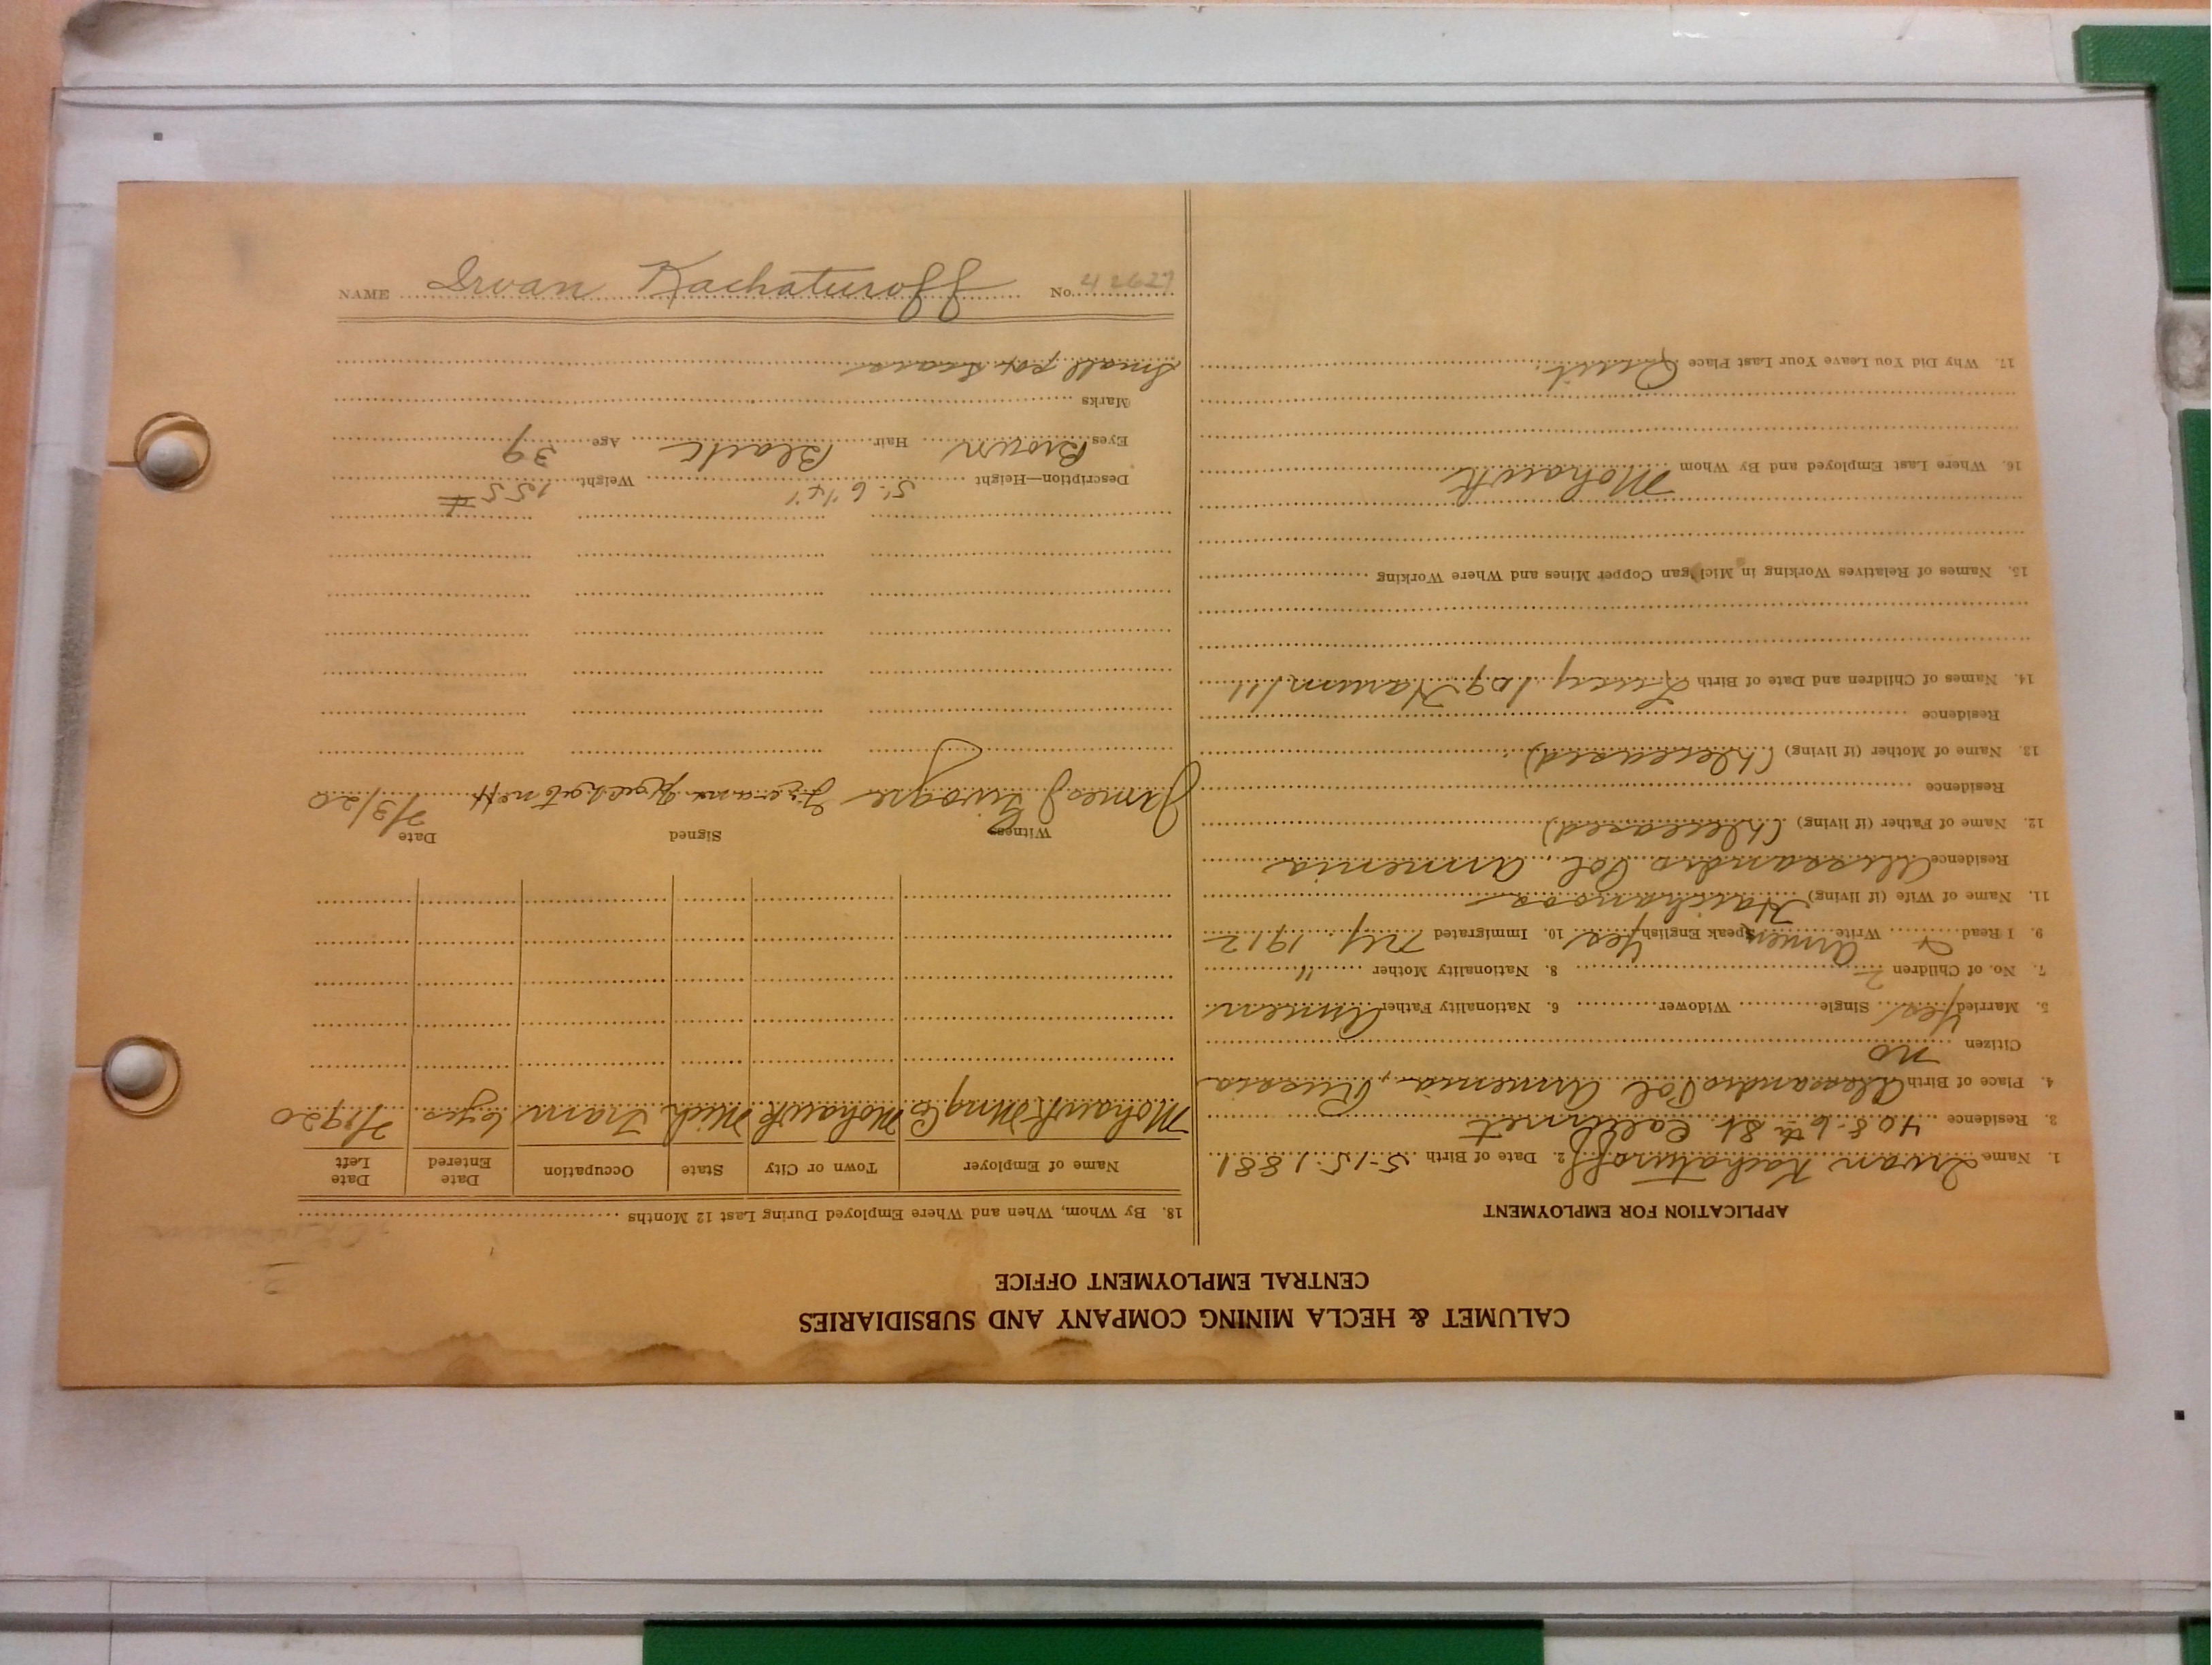 CALUMET & HECLA MINING COMPANY AND SUBSIDIARIES
CENTRAL EMPLOYMENT OFFICE
APPLICATION FOR EMPLOYMENT
1. Name Irvan Kachaturoff 2. Date of Birth 5-15-1881
3. Residence 408-6th St. Calumet
4. Place of Birth Alexandropol Armenia, Russia
Citizen no
5. Married Yes Single Widower 6. Nationality Father Armen
7. No. of Children 2 8. Nationality Mother "
9. I Read & Write Armen Speak English Yes 10. Immigrated NY 1912
11. Name of Wife (if living)
Residence Alissandro Pol, Armenia
12. Name of Father (if living) (Deceased)
Residence
13. Name of Mother (if living) (Deceased)
Residence
14. Names of Children and Date of Birth Lucy 109 Harum 111
15. Names of Relatives Working in Michigan Copper Mines and Where Working
16. Where Last Employed and By Whom Mohawk
17. Why Did You Leave Your Last Place Quit.
18. By Whom, When and Where Employed During Last 12 Months
Name of Employer Town or City State Occupation Date Entered Date Left
Mohawk Mng Co Mohawk Mich Tram 6 yrs 7/1920
Witness Signed Date
James J 7/3/20
Description—Height 5' 6 1/4" Weight 155 #
Eyes Brown Hair Black Age 39
Marks
Small pox scars
NAME Irvan Kachaturoff No. 42627